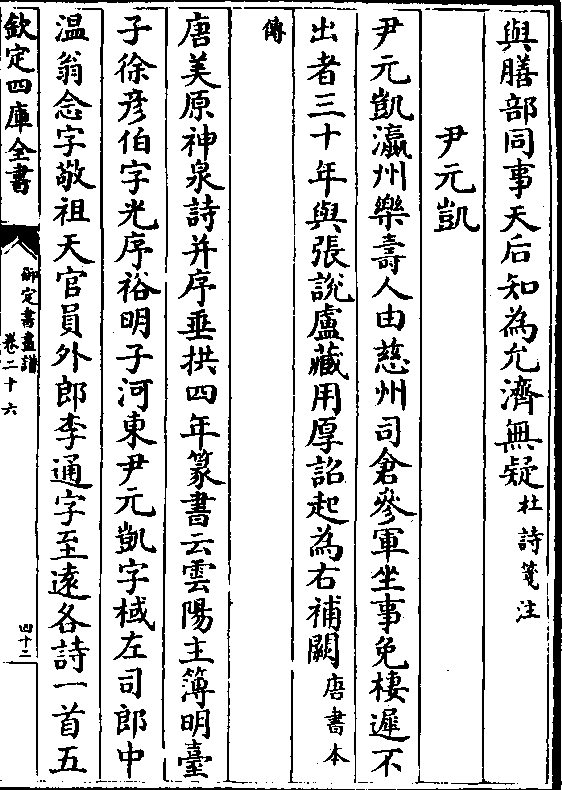 與膳部同事天后知為允濟無疑杜詩箋注
尹元凱
尹元凱瀛州樂壽人由慈州司倉參軍坐事免棲遲不
出者三十年與張說盧藏用厚詔起為右補闕唐書本
傳
唐美原神泉詩并序垂拱四年篆書云雲陽主簿明臺
子徐彥伯字光序裕明子河東尹元凱字棫左司郎中
温翁念字敬祖天官員外郎李通字至遠各詩一首五
欽定四庫全書
御定書畫譜
卷二十六
四十二